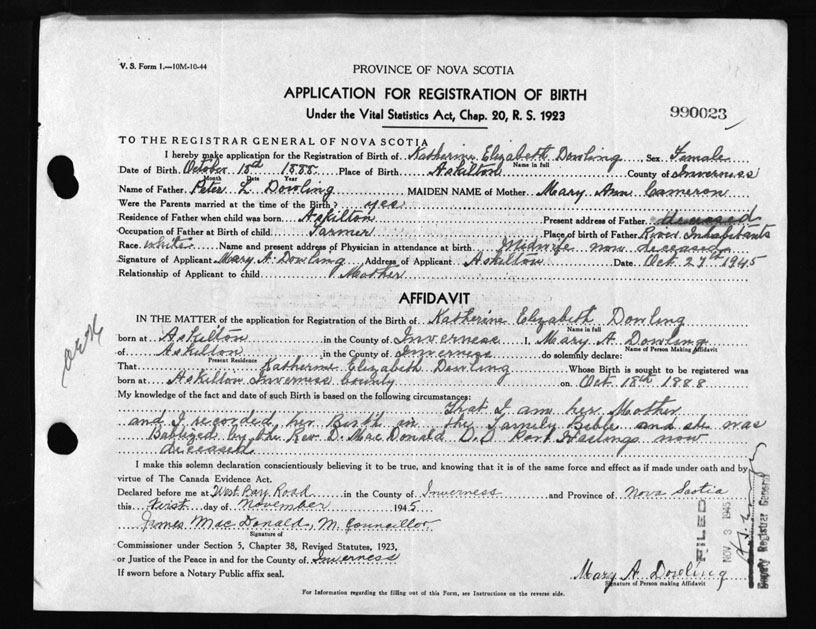 V. S. Form 1.—10M-10-44
PROVINCE OF NOVA SCOTIA
APPLICATION FOR REGISTRATION OF BIRTH
990023
Under the Vital Statistics Act, Chap. 20, R. S. 1923
TO THE REGISTRAR GENERAL OF NOVA SCOTIA
I hereby make application for the Registration of Birth of Katherine Elizabeth Dowling Sex Female
Name in full
Date of Birth October 18th 1888 Place of Birth Askilton County of Inverness
Month Date Year
Name of Father Peter L Dowling MAIDEN NAME of Mother Mary Ann Cameron
Were the Parents married at the time of the Birth? yes
Residence of Father when child was born Askilton Present address of Father deceased
Occupation of Father at Birth of child Farmer Place of birth of Father River Inhabitants
Race white Name and present address of Physician in attendance at birth Midwife now deceased
Signature of Applicant Mary A. Dowling Address of Applicant Askilton Date Oct. 27th 1945
Relationship of Applicant to child Mother
AFFIDAVIT
IN THE MATTER of the application for Registration of the Birth of Katherine Elizabeth Dowling
Name in full
born at Askilton in the County of Inverness I, Mary A. Dowling
Name of Person Making Affidavit
of Askilton in the County of Inverness do solemnly declare:
Present Residence
That Katherine Elizabeth Dowling Whose Birth is sought to be registered was
born at Askilton Inverness County on Oct. 18th 1888
My knowledge of the fact and date of such Birth is based on the following circumstances:
That I am her Mother
and I recorded her Birth in the Family Bible and she was
Baptized by the Rev. D. MacDonald D.D Port Hastings now
deceased
I make this solemn declaration conscientiously believing it to be true, and knowing that it is of the same force and effect as if made under oath and by
virtue of The Canada Evidence Act.
Declared before me at West Bay Road in the County of Inverness and Province of Nova Scotia
this First day of November 1945
James MacDonald, M. Councillor
Signature of
Commissioner under Section 5, Chapter 38, Revised Statutes, 1923,
or Justice of the Peace in and for the County of Inverness
If sworn before a Notary Public affix seal.
Mary A Dowling
Signature of Person making Affidavit
FILED
NOV 3 1945
Deputy Registrar General
For Information regarding the filling out of this Form, see Instructions on the reverse side.